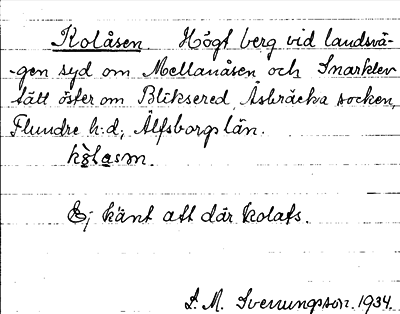 Kolåsen Högt berg vid landsvä-
-gen syd om Mellanåsen och Snarklev
tätt öster om Bliksered, Åsbräcka socken,
Flundre h:d, Älfsborgs län.
Ej känt att där kolats.
S. M. Sverrungsson. 1934.